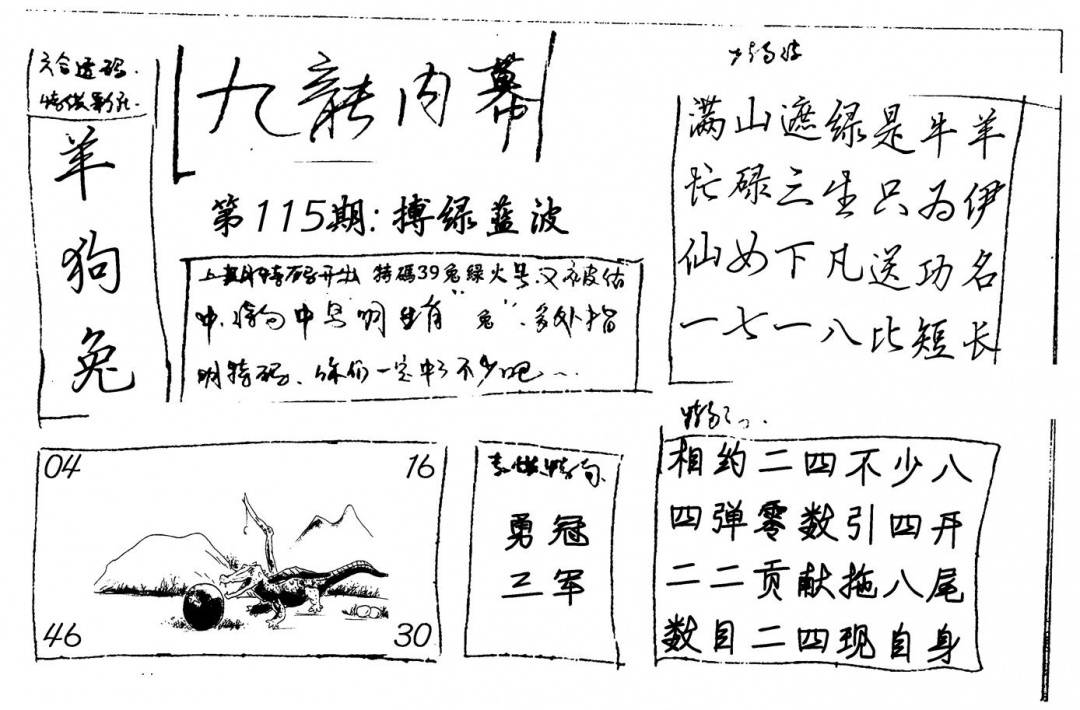 六合透码.
特供彩孔.
羊
狗
兔
九龍内幕
第115期:搏绿蓝波
上期特码开出 特碼39兔綠火号.又被估
中.特句中写明生肖"兔".多处指
明特码.你们一定中了不少吧...
满山遮绿是牛羊
忙碌三生只为伊
仙女下凡送功名
一七一八比短长
04
16
46
30
特句
勇冠
三军
相约二四不少八
四弹零数引四开
二二贡献拖八尾
数目二四现自身